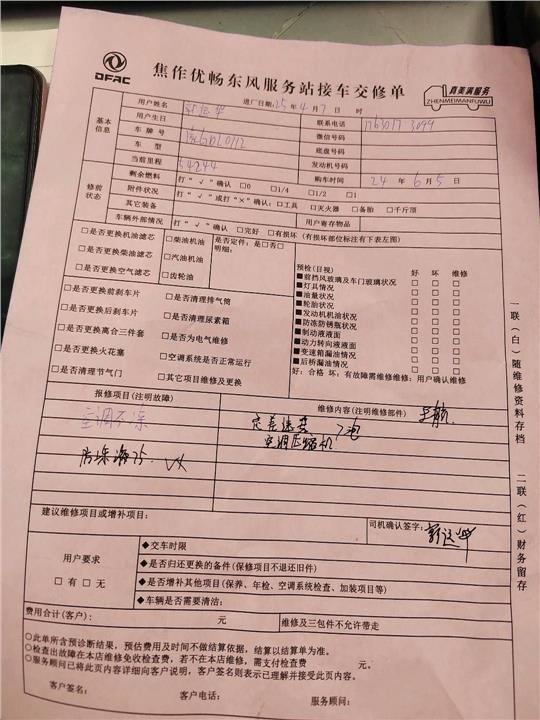 DFAC
焦作优畅东风服务站接车交修单
真美满服务
ZHENMEIMANFUWU
基本信息
用户姓名 进厂日期:25年4月7日 时
用户生日 联系电话
车牌号 微信号码
车型 底盘号码
当前里程 54244 发动机号码
购车时间 24年6月5日
修前状态
剩余燃料 打“√”确认 □0 □1/4 □1/2 □1
附件状况 打“√”或打“×”确认:□工具 □灭火器 □备胎 □千斤顶
其它装备 用户寄存物品
车辆外部情况 打“√”确认 □完好 □有损坏(有损坏部位标注有下表左图)
□是否更换机油滤芯 □柴油机油 是否定件:是□否□
明细:
□是否更换柴油滤芯 □汽油机油
□是否更换空气滤芯 □齿轮油
□是否更换前刹车片 □是否清理排气筒
□是否更换后刹车片 □是否清理尿素箱
□是否更换离合三件套 □是否为电气维修
□是否更换火花塞 □空调系统是否正常运行
□是否清理节气门 □其它项目维修及更换
预检(目视) 好 坏 维修
■前挡风玻璃及车门玻璃状况 □ □ □
■灯具情况 □ □ □
■油量状况 □ □ □
■轮胎状况 □ □ □
■发动机机油状况 □ □ □
■防冻防锈瓶状况 □ □ □
■制动液液面 □ □ □
■动力转向液液面 □ □ □
■变速箱漏油情况 □ □ □
■后桥漏油情况 □ □ □
好:合格 坏:有故障需维修维修:用户确认维修
报修项目(注明故障) 维修内容(注明维修部件)
空调不凉
空调压缩机
建议维修项目或增补项目:
司机确认签字:
用户要求
□有 □无
◆交车时限
◆是否归还更换的备件(保修项目不退还旧件)
◆是否增补其他项目(保养、年检、空调系统检查、加装项目等)
◆车辆是否需要清洁:
费用合计(客户): 元 维修及三包件不允许带走
○此单所含预诊断结果,预估费用及时间不做结算依据,结算以结算单为准。
○检查出故障在本店维修免收检查费,若不在本店维修,需支付检查费 元。
○服务顾问已将此页内容详细向客户说明,客户签名则表示已理解并接受此页内容。
客户签名: 客户电话: 服务顾问:
一联(白)随维修资料存档
二联(红)财务留存